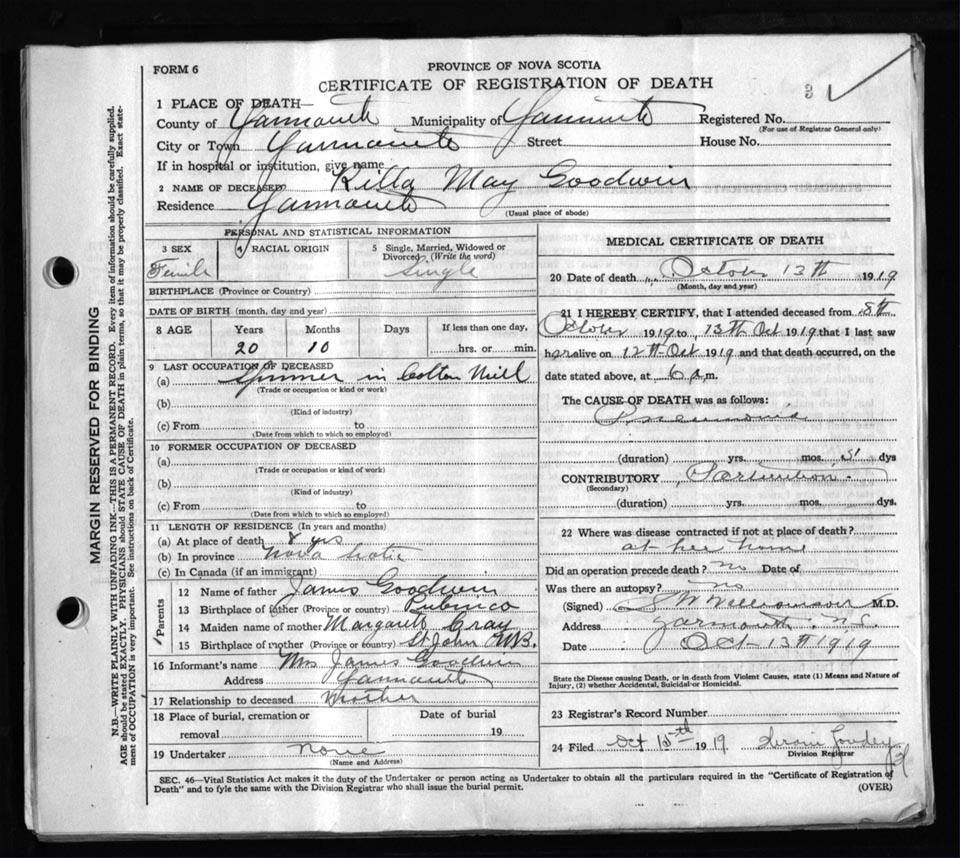 PROVINCE OF NOVA SCOTIA
FORM 6
CERTIFICATE OF REGISTRATION OF DEATH
1 PLACE OF DEATH—
County of Yarmouth Municipality of Yarmouth Registered No.
(For use of Registrar General only)
City or Town Yarmouth Street House No.
If in hospital or institution, give name
2 NAME OF DECEASED Rilla May Goodwin
Residence Yarmouth
(Usual place of abode)
PERSONAL AND STATISTICAL INFORMATION
3 SEX 4 RACIAL ORIGIN 5 Single, Married, Widowed or Divorced (Write the word)
Female Single
BIRTHPLACE (Province or Country)
DATE OF BIRTH (month, day and year)
8 AGE Years Months Days If less than one day,
20 10 hrs. or min.
9 LAST OCCUPATION OF DECEASED
(a) Spinner in Cotton Mill
(Trade or occupation or kind or work)
(b)
(Kind of industry)
(c) From to
(Date from which to which so employed)
10 FORMER OCCUPATION OF DECEASED
(a)
(Trade or occupation or kind of work)
(b)
(Kind of industry)
(c) From to
(Date from which to which so employed)
11 LENGTH OF RESIDENCE (In years and months)
(a) At place of death 8 yrs
(b) In province Nova Scotia
(c) In Canada (if an immigrant)
Parents
12 Name of father James Goodwin
13 Birthplace of father (Province or country) Pubnico
14 Maiden name of mother Margaret Gray
15 Birthplace of mother (Province or country) St John NB.
16 Informant's name Mrs James Goodwin
Address Yarmouth
17 Relationship to deceased Mother
18 Place of burial, cremation or removal Date of burial 19
19 Undertaker none
(Name and Address)
MEDICAL CERTIFICATE OF DEATH
20 Date of death October 13th 1919
(Month, day and year)
21 I HEREBY CERTIFY, that I attended deceased from 8th
October 1919 to 13th Oct 1919 that I last saw
her alive on 12th Oct 1919 and that death occurred, on the
date stated above, at 6 a.m.
The CAUSE OF DEATH was as follows:
Pneumonia
(duration) yrs. mos. 5 dys
CONTRIBUTORY Parturition
(Secondary)
(duration) yrs. mos. dys.
22 Where was disease contracted if not at place of death?
at her home
Did an operation precede death? No Date of
Was there an autopsy? No
(Signed) Williamson M.D.
Address Yarmouth N.S.
Date Oct 13th 1919
State the Disease causing Death, or in death from Violent Causes, state (1) Means and Nature of
Injury, (2) whether Accidental, Suicidal or Homicidal.
23 Registrar's Record Number
24 Filed Oct 15th 1919
Division Registrar
SEC. 46—Vital Statistics Act makes it the duty of the Undertaker or person acting as Undertaker to obtain all the particulars required in the "Certificate of Registration of
Death" and to fyle the same with the Division Registrar who shall issue the burial permit. (OVER)
MARGIN RESERVED FOR BINDING
N.B.—WRITE PLAINLY WITH UNFADING INK—THIS IS A PERMANENT RECORD. Every item of information should be carefully supplied.
AGE should be stated EXACTLY. PHYSICIANS should STATE CAUSE OF DEATH in plain terms, so that it may be properly classified. Exact state-
ment of OCCUPATION is very important. See instructions on back of Certificate.